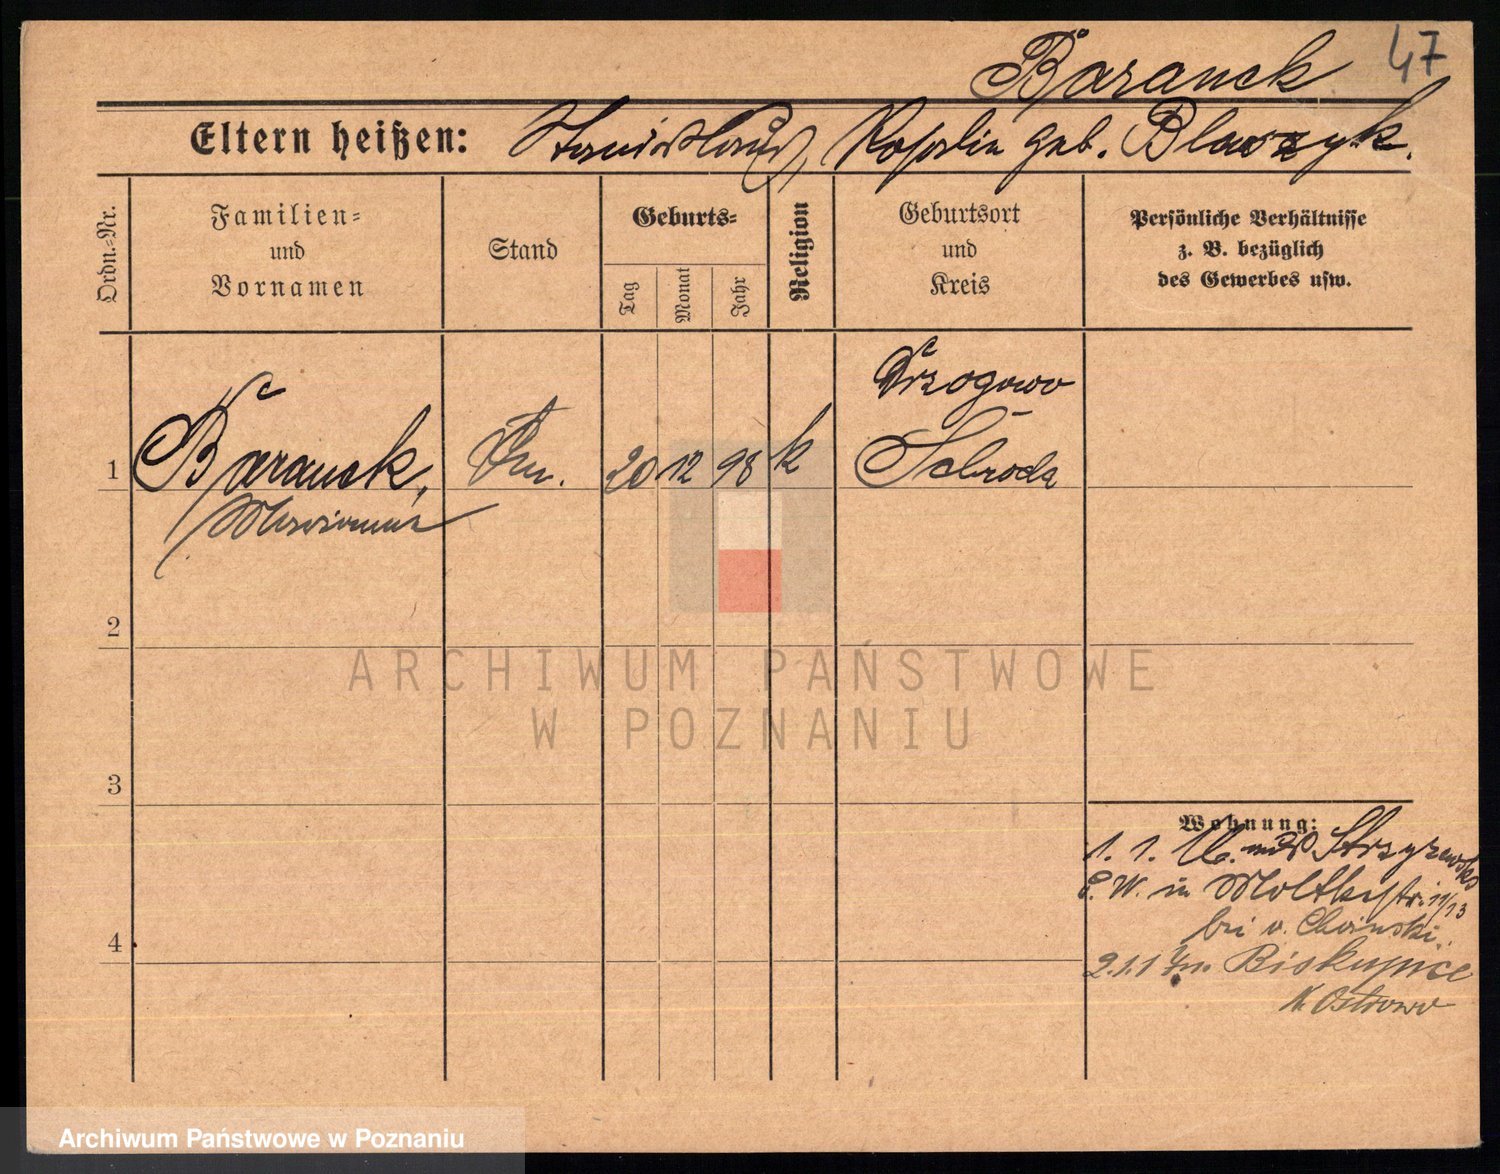 Baranek 47
Eltern heißen: Stanislaus, Rosalie geb. Blaszyk.
Ordn.-Nr.
Familien-
und
Vornamen
Stand
Geburts-
Tag
Monat
Jahr
Religion
Geburtsort
und
Kreis
Persönliche Verhältnisse
z. B. bezüglich
des Gewerbes usw.
1 Baranek, 20 12 98 k Schroda
Marianna
2
ARCHIWUM PAŃSTWOWE
W POZNANIU
3
Wohnung:
1. 1. Strzyzewko
in Moltkestr. 11/13
bei v. Chrinski.
4
2.1.1 Biskupice
K. Ostrowo
Archiwum Państwowe w Poznaniu